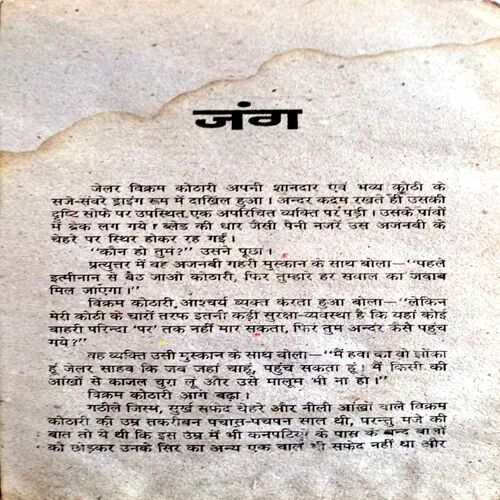 जंग
जेलर विक्रम कोठारी अपनी शानदार एवं भव्य कोठी के
सजे-संवरे ड्राइंग रूम में दाखिल हुआ। अन्दर कदम रखते ही उसकी
दृष्टि सोफे पर उपस्थित एक अपरिचित व्यक्ति पर पड़ी। उसके पांवों
में ब्रेक लग गये। ब्लेड की धार जैसी पैनी नजरें उस अजनबी के
चेहरे पर स्थिर होकर रह गईं।
"कौन हो तुम?" उसने पूछा।
प्रत्युत्तर में वह अजनबी गहरी मुस्कान के साथ बोला—"पहले
इत्मीनान से बैठ जाओ कोठारी, फिर तुम्हारे हर सवाल का जवाब
मिल जाएगा।"
विक्रम कोठारी आश्चर्य व्यक्त करता हुआ बोला—"लेकिन
मेरी कोठी के चारों तरफ इतनी कड़ी सुरक्षा-व्यवस्था है कि यहां कोई
बाहरी परिन्दा 'पर' तक नहीं मार सकता, फिर तुम अन्दर कैसे पहुंच
गये?"
वह व्यक्ति उसी मुस्कान के साथ बोला—"मैं हवा का वो झोंका
हूं जेलर साहब कि जब जहां चाहूं, पहुंच सकता हूं। मैं किसी की
आंखों से काजल चुरा लूं और उसे मालूम भी ना हो।"
विक्रम कोठारी आगे बढ़ा।
गठीले जिस्म, सुर्ख सफेद चेहरे और नीली आंखों वाले विक्रम
कोठारी की उम्र तकरीबन पचास-पचपन साल थी, परन्तु मजे की
बात तो ये थी कि इस उम्र में भी कनपटियों के पास के चन्द बालों
को छोड़कर उनके सिर का अन्य एक बाल भी सफेद नहीं था और